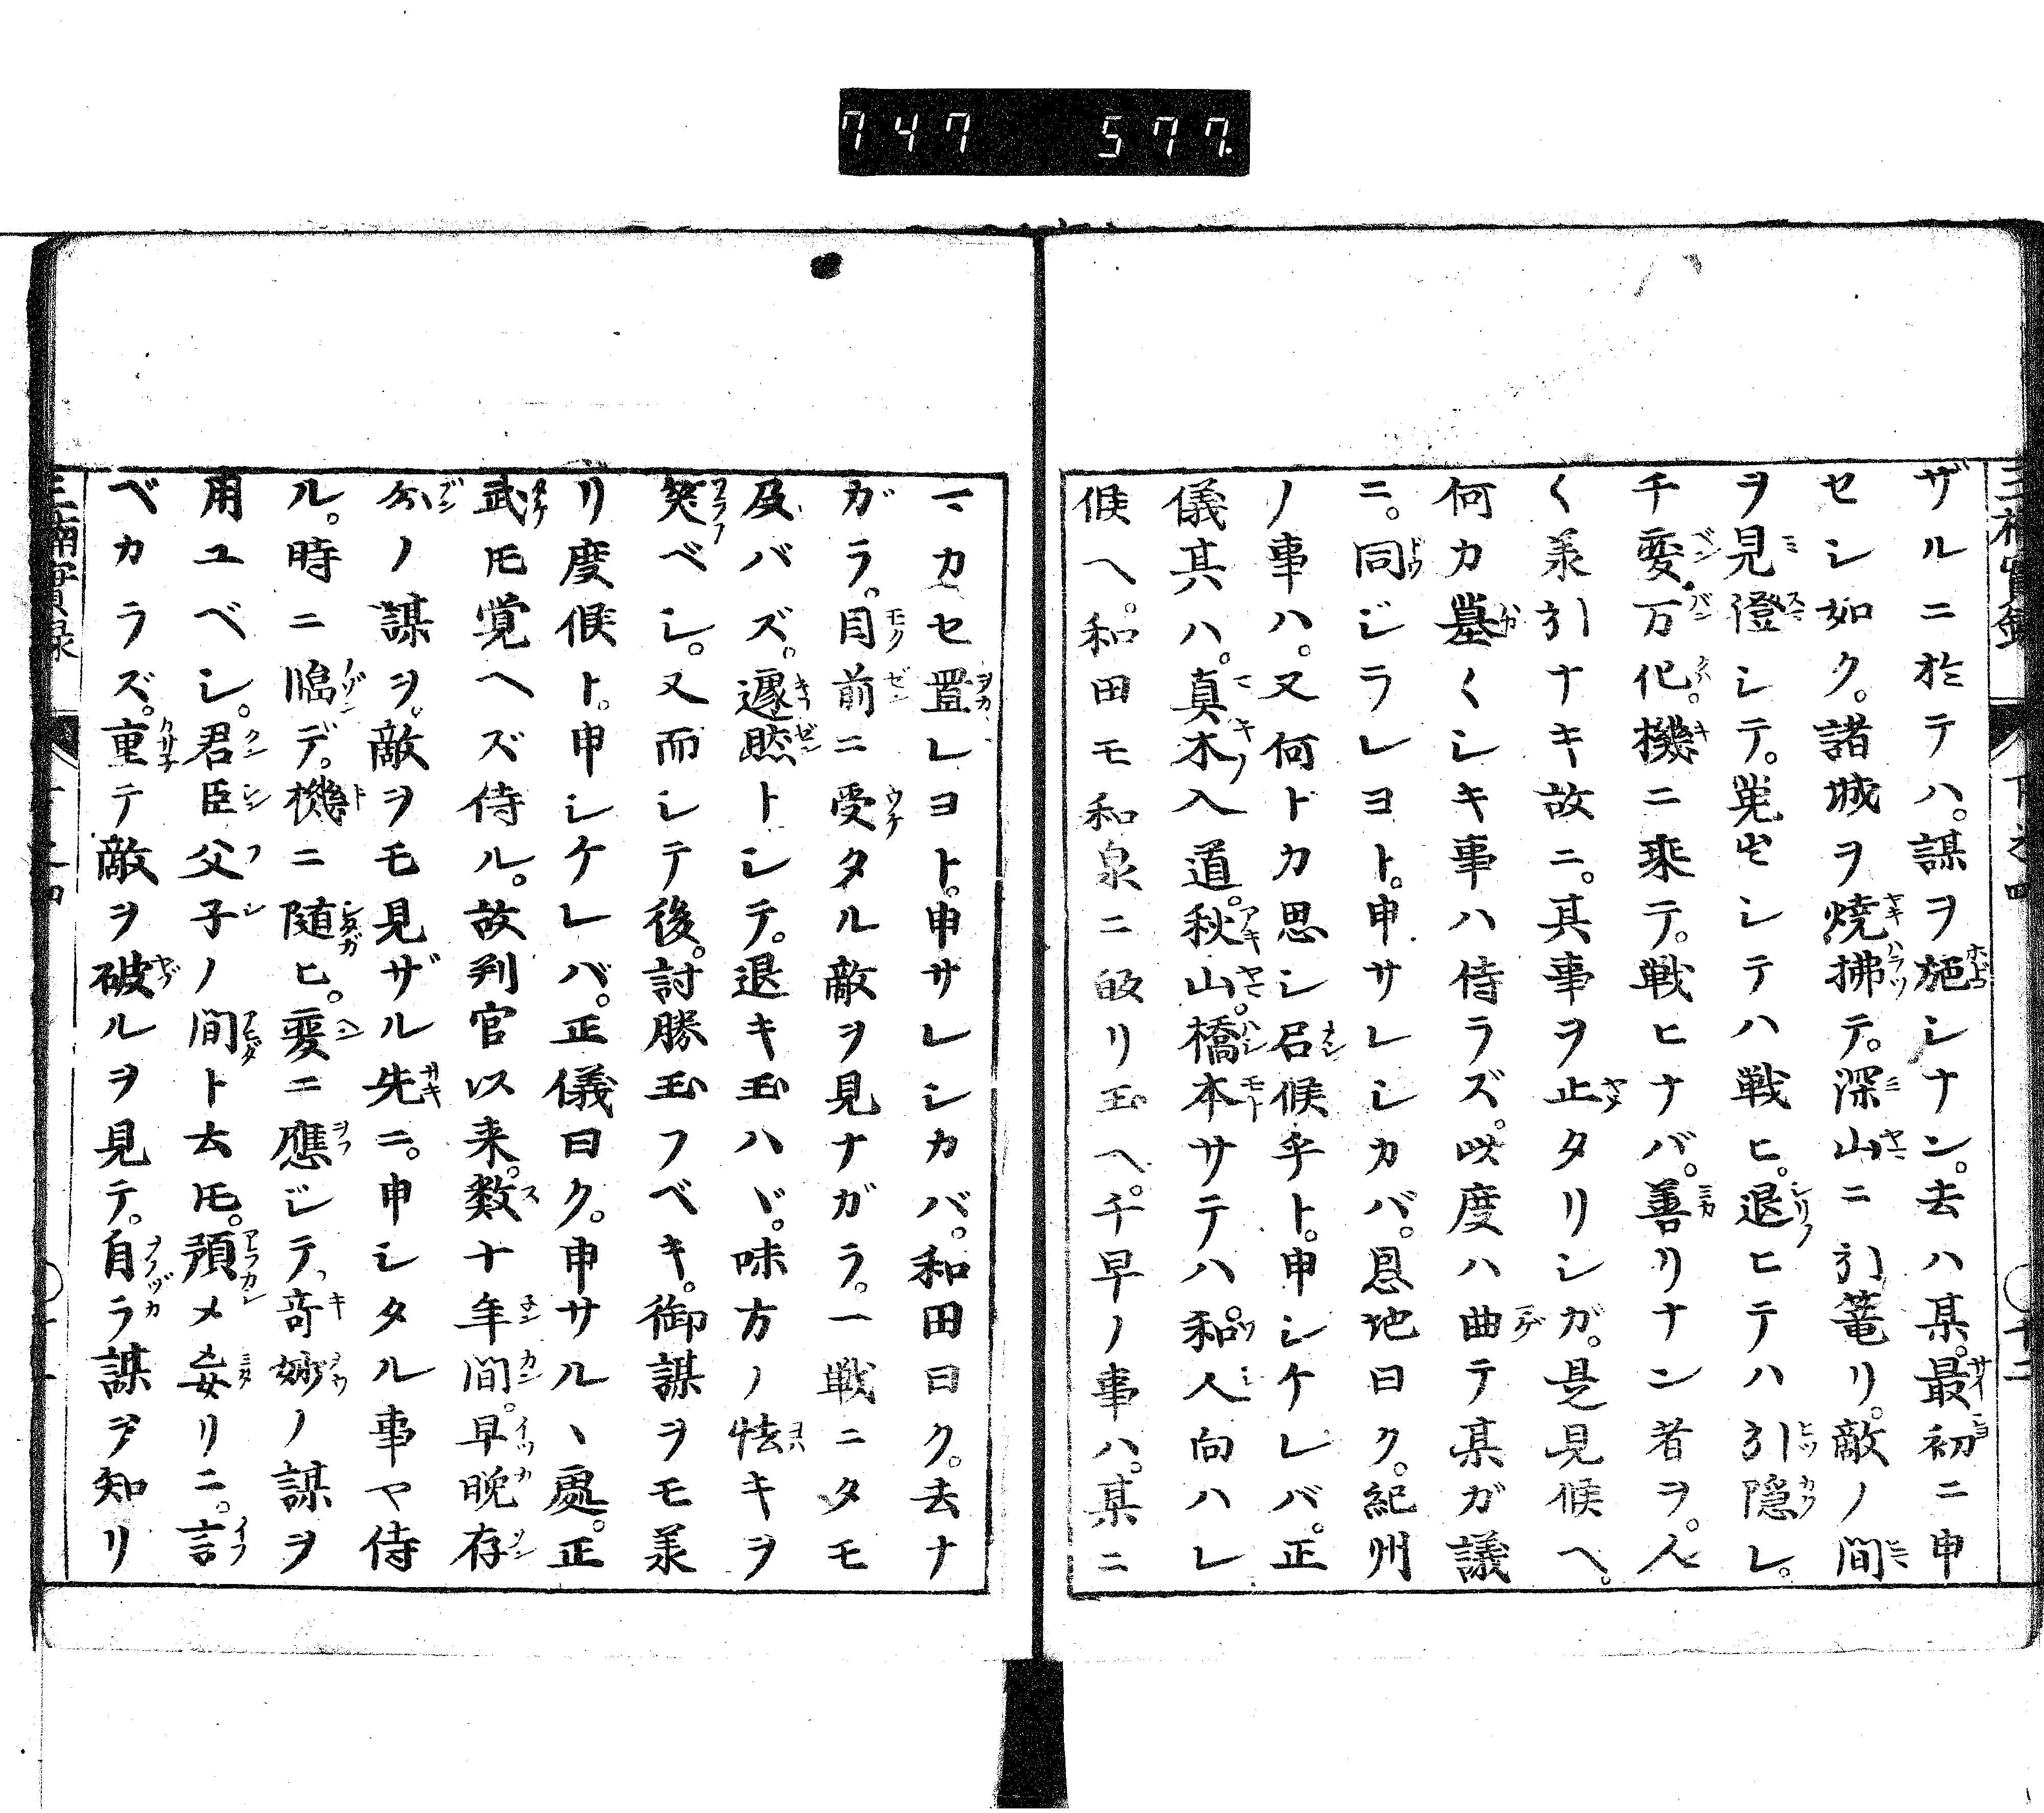 747 577.
ザルニ於テハ。謀ヲ施シナン。去ハ某。最初ニ申
セシ如ク。諸城ヲ焼拂テ。深山ニ引篭リ。敵ノ間
ヲ見澄シテ。蒐出シテハ戦ヒ。退ヒテハ引隠レ。
千変万化。機ニ乘テ。戦ヒナバ。善リナン者ヲ。人
〱羕引ナキ故ニ。其事ヲ止タリシガ。是見候ヘ。
何カ墓〱シキ事ハ侍ラズ。此度ハ曲テ某ガ議
ニ。同ジラレヨト。申サレシカバ。恩地曰ク。紀州
ノ事ハ。又何ドカ思シ召候乎ト。申シケレバ。正
儀其ハ。真木ノ入道。秋山。橋本サテハ。和人向ハレ
候ヘ。和田モ和泉ニ皈リ玉ヘ。千早ノ事ハ。某ニ
マカセ置レヨト。申サレシカバ。和田曰ク。去ナ
ガラ。目前ニ受タル敵ヲ見ナガラ。一戦ニタモ
及バズ。遽然トシテ。退キ玉ハヾ。味方ノ怯キヲ
笑ベシ。又而シテ後。討勝玉フベキ。御謀ヲモ羕
リ度候ト。申シケレバ。正儀曰ク。申サル丶處。正
武𪜈覚ヘズ侍ル。故判官以来。数十年間。早晩存
分ノ謀ヲ。敵ヲモ見ザル先ニ。申シタル事ヤ侍
ル。時ニ臨デ。機ニ随ヒ。変ニ應ジテ。竒妙ノ謀ヲ
用ユベシ。君臣父子ノ間ト云𪜈。預メ妄リニ。言
ベカラズ。重テ敵ヲ破ルヲ見テ。自ラ謀ヲ知リ